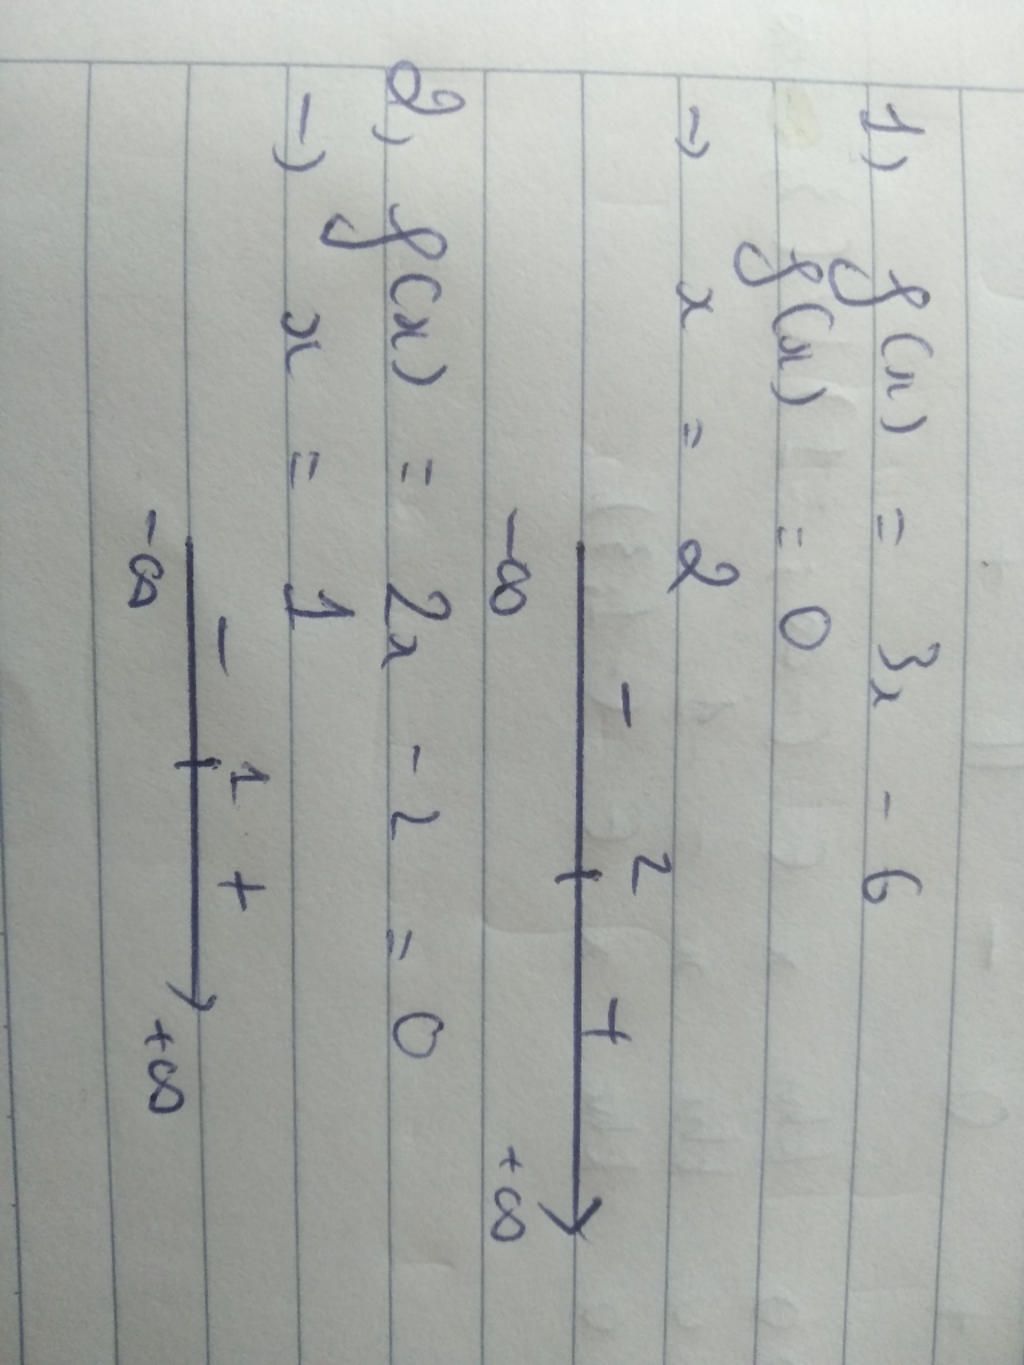 1) f(x) = 3x - 6
f(x) = 0
→ x = 2
- 2 +
-∞ +∞
2, f(x) = 2x - 2 = 0
→ x = 1
- 1 +
-∞ +∞